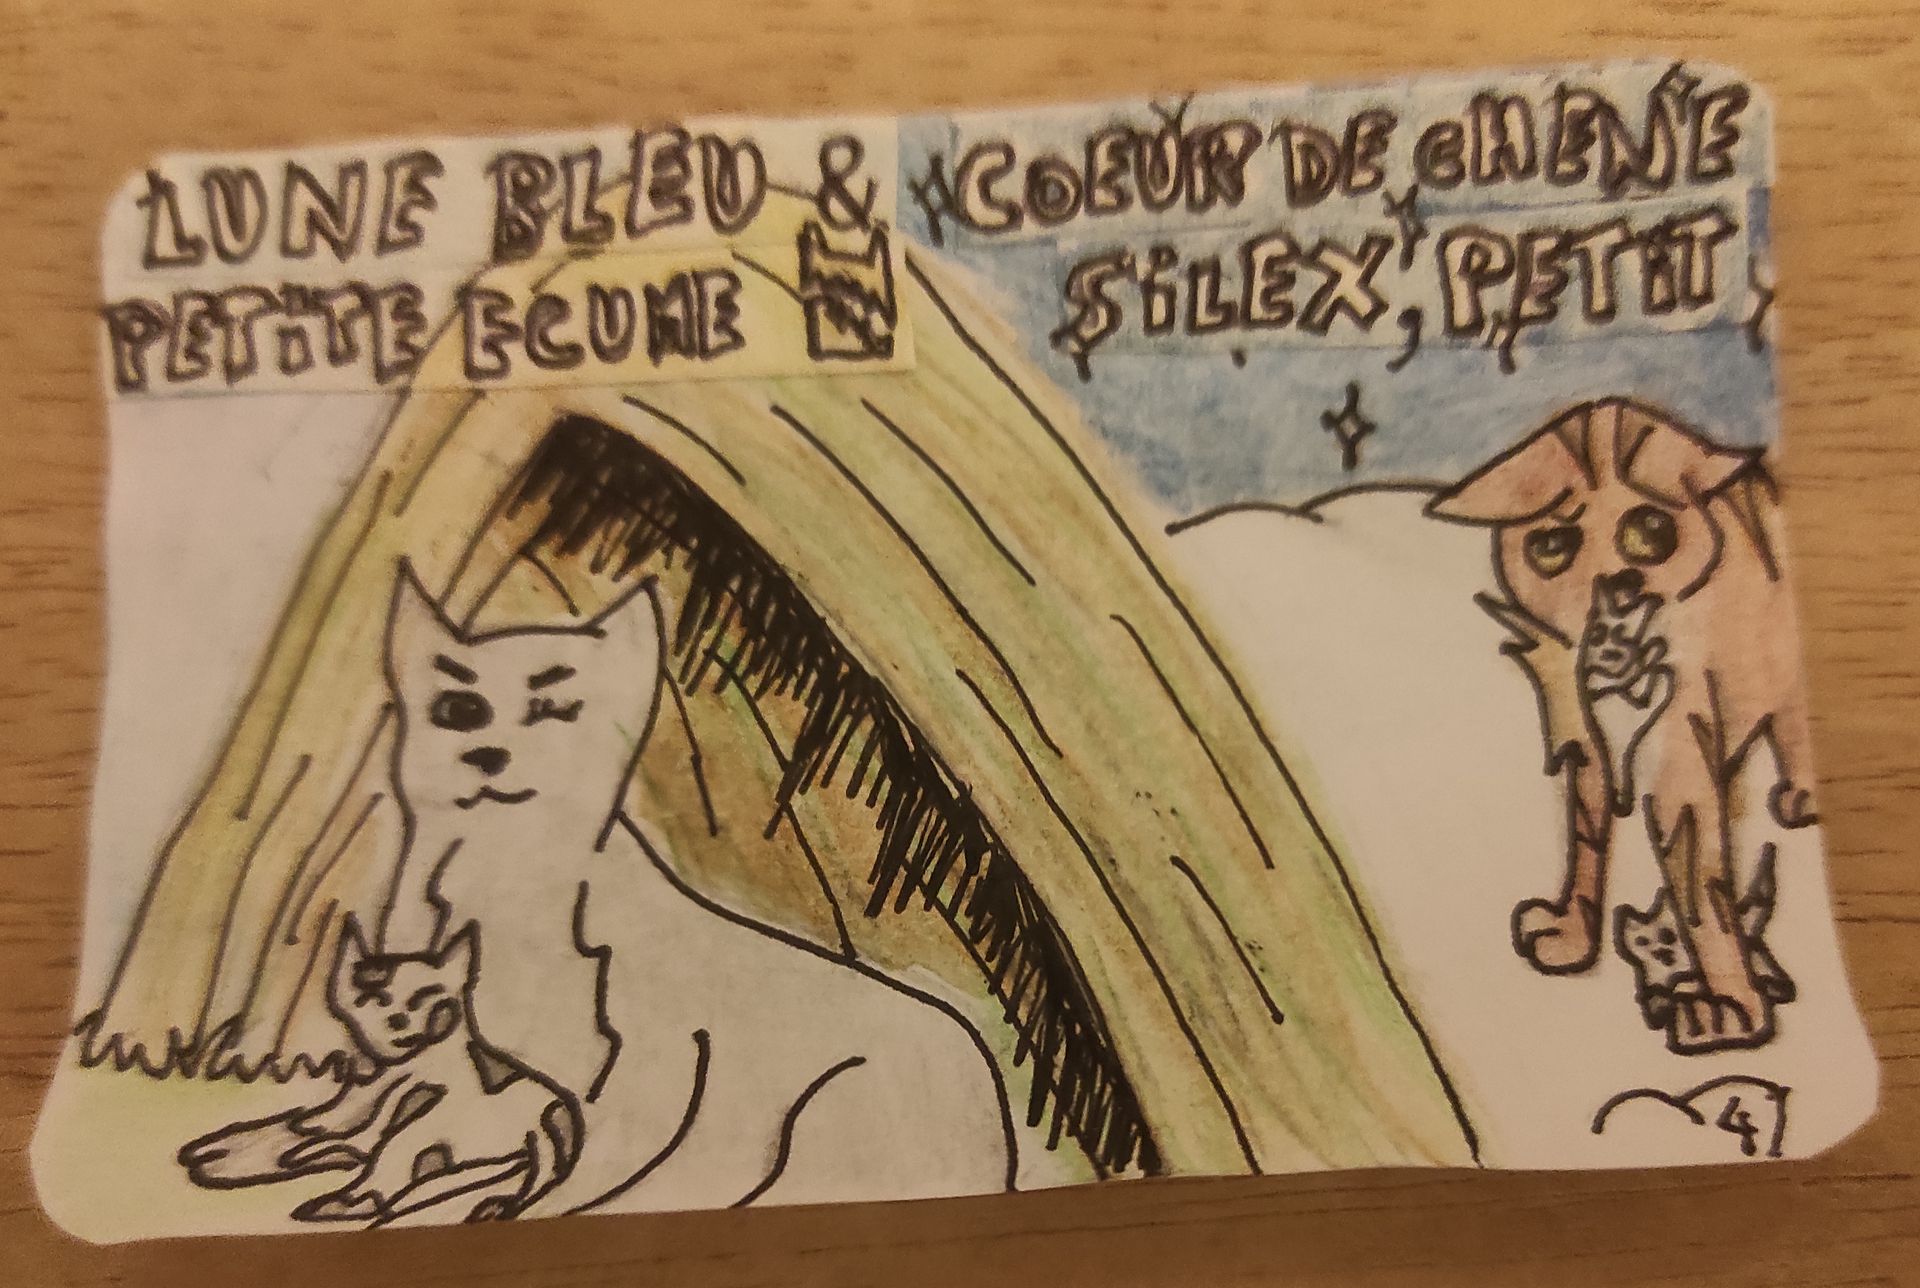 LUNE BLEU &
PETITE ECUME
COEUR DE CHENE
SILEX, PETIT
41